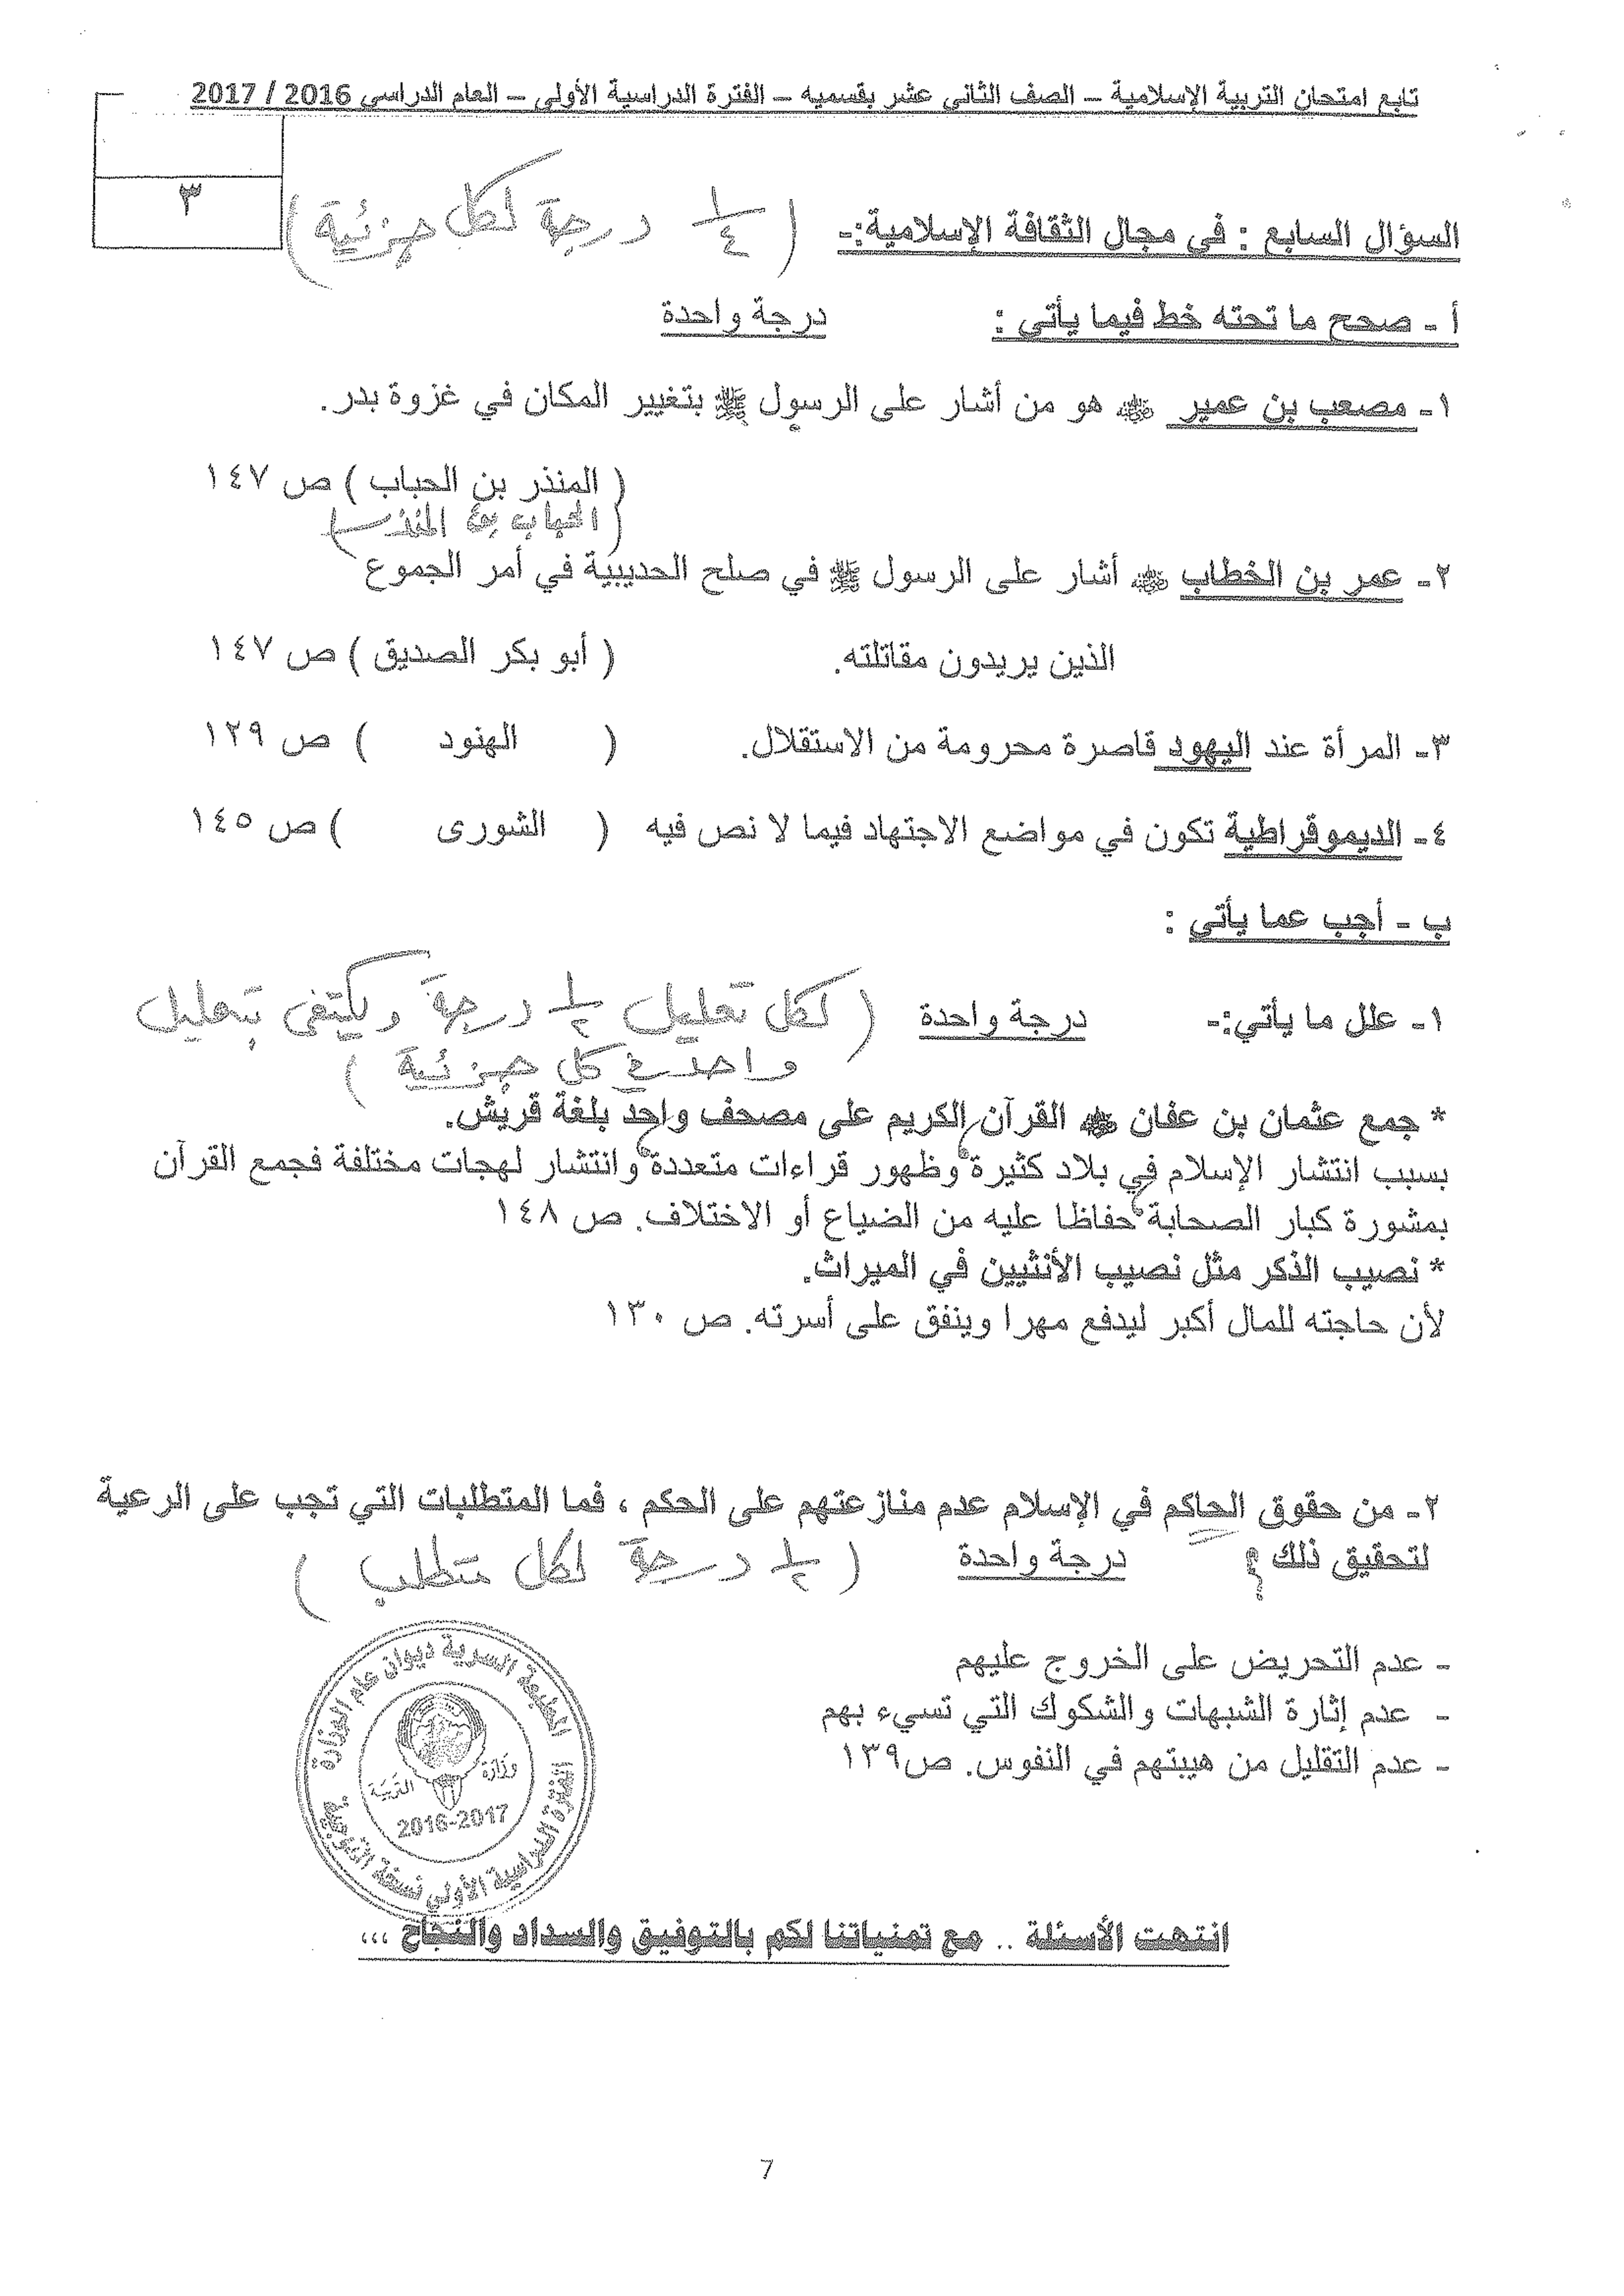 تابع امتحان التربية الإسلامية – الصف الثاني عشر بقسميه – الفترة الدراسية الأولى – العام الدراسي 2016 / 2017
٣
السؤال السابع : في مجال الثقافة الإسلامية:- ( ١/٤ درجة لكل جزئية )
أ - صحح ما تحته خط فيما يأتي : درجة واحدة
١- مصعب بن عمير رضي الله عنه هو من أشار على الرسول ﷺ بتغيير المكان في غزوة بدر.
( المنذر بن الحباب ) ص ١٤٧
( الحباب بن المنذر )
٢- عمر بن الخطاب رضي الله عنه أشار على الرسول ﷺ في صلح الحديبية في أمر الجموع
الذين يريدون مقاتلته. ( أبو بكر الصديق ) ص ١٤٧
٣- المرأة عند اليهود قاصرة محرومة من الاستقلال. ( الهنود ) ص ١٢٩
٤- الديموقراطية تكون في مواضع الاجتهاد فيما لا نص فيه ( الشورى ) ص ١٤٥
ب - أجب عما يأتي :
١- علل ما يأتي:- درجة واحدة ( لكل تعليل ١/٢ درجة ويكتفى بتعليل
واحد في كل جزئية )
* جمع عثمان بن عفان رضي الله عنه القرآن الكريم على مصحف واحد بلغة قريش.
بسبب انتشار الإسلام في بلاد كثيرة وظهور قراءات متعددة وانتشار لهجات مختلفة فجمع القرآن
بمشورة كبار الصحابة حفاظا عليه من الضياع أو الاختلاف. ص ١٤٨
* نصيب الذكر مثل نصيب الأنثيين في الميراث.
لأن حاجته للمال أكبر ليدفع مهرا وينفق على أسرته. ص ١٣٠
٢- من حقوق الحاكم في الإسلام عدم منازعتهم على الحكم ، فما المتطلبات التي تجب على الرعية
لتحقيق ذلك ؟ درجة واحدة ( ١/٢ درجة لكل متطلب )
- عدم التحريض على الخروج عليهم
- عدم إثارة الشبهات والشكوك التي تسيء بهم
- عدم التقليل من هيبتهم في النفوس. ص١٣٩
المطبعة السرية ديوان عام الوزارة
وزارة التربية
2016-2017
الفترة الدراسية الأولى نسخة
انتهت الأسئلة .. مع تمنياتنا لكم بالتوفيق والسداد والنجاح ...
7